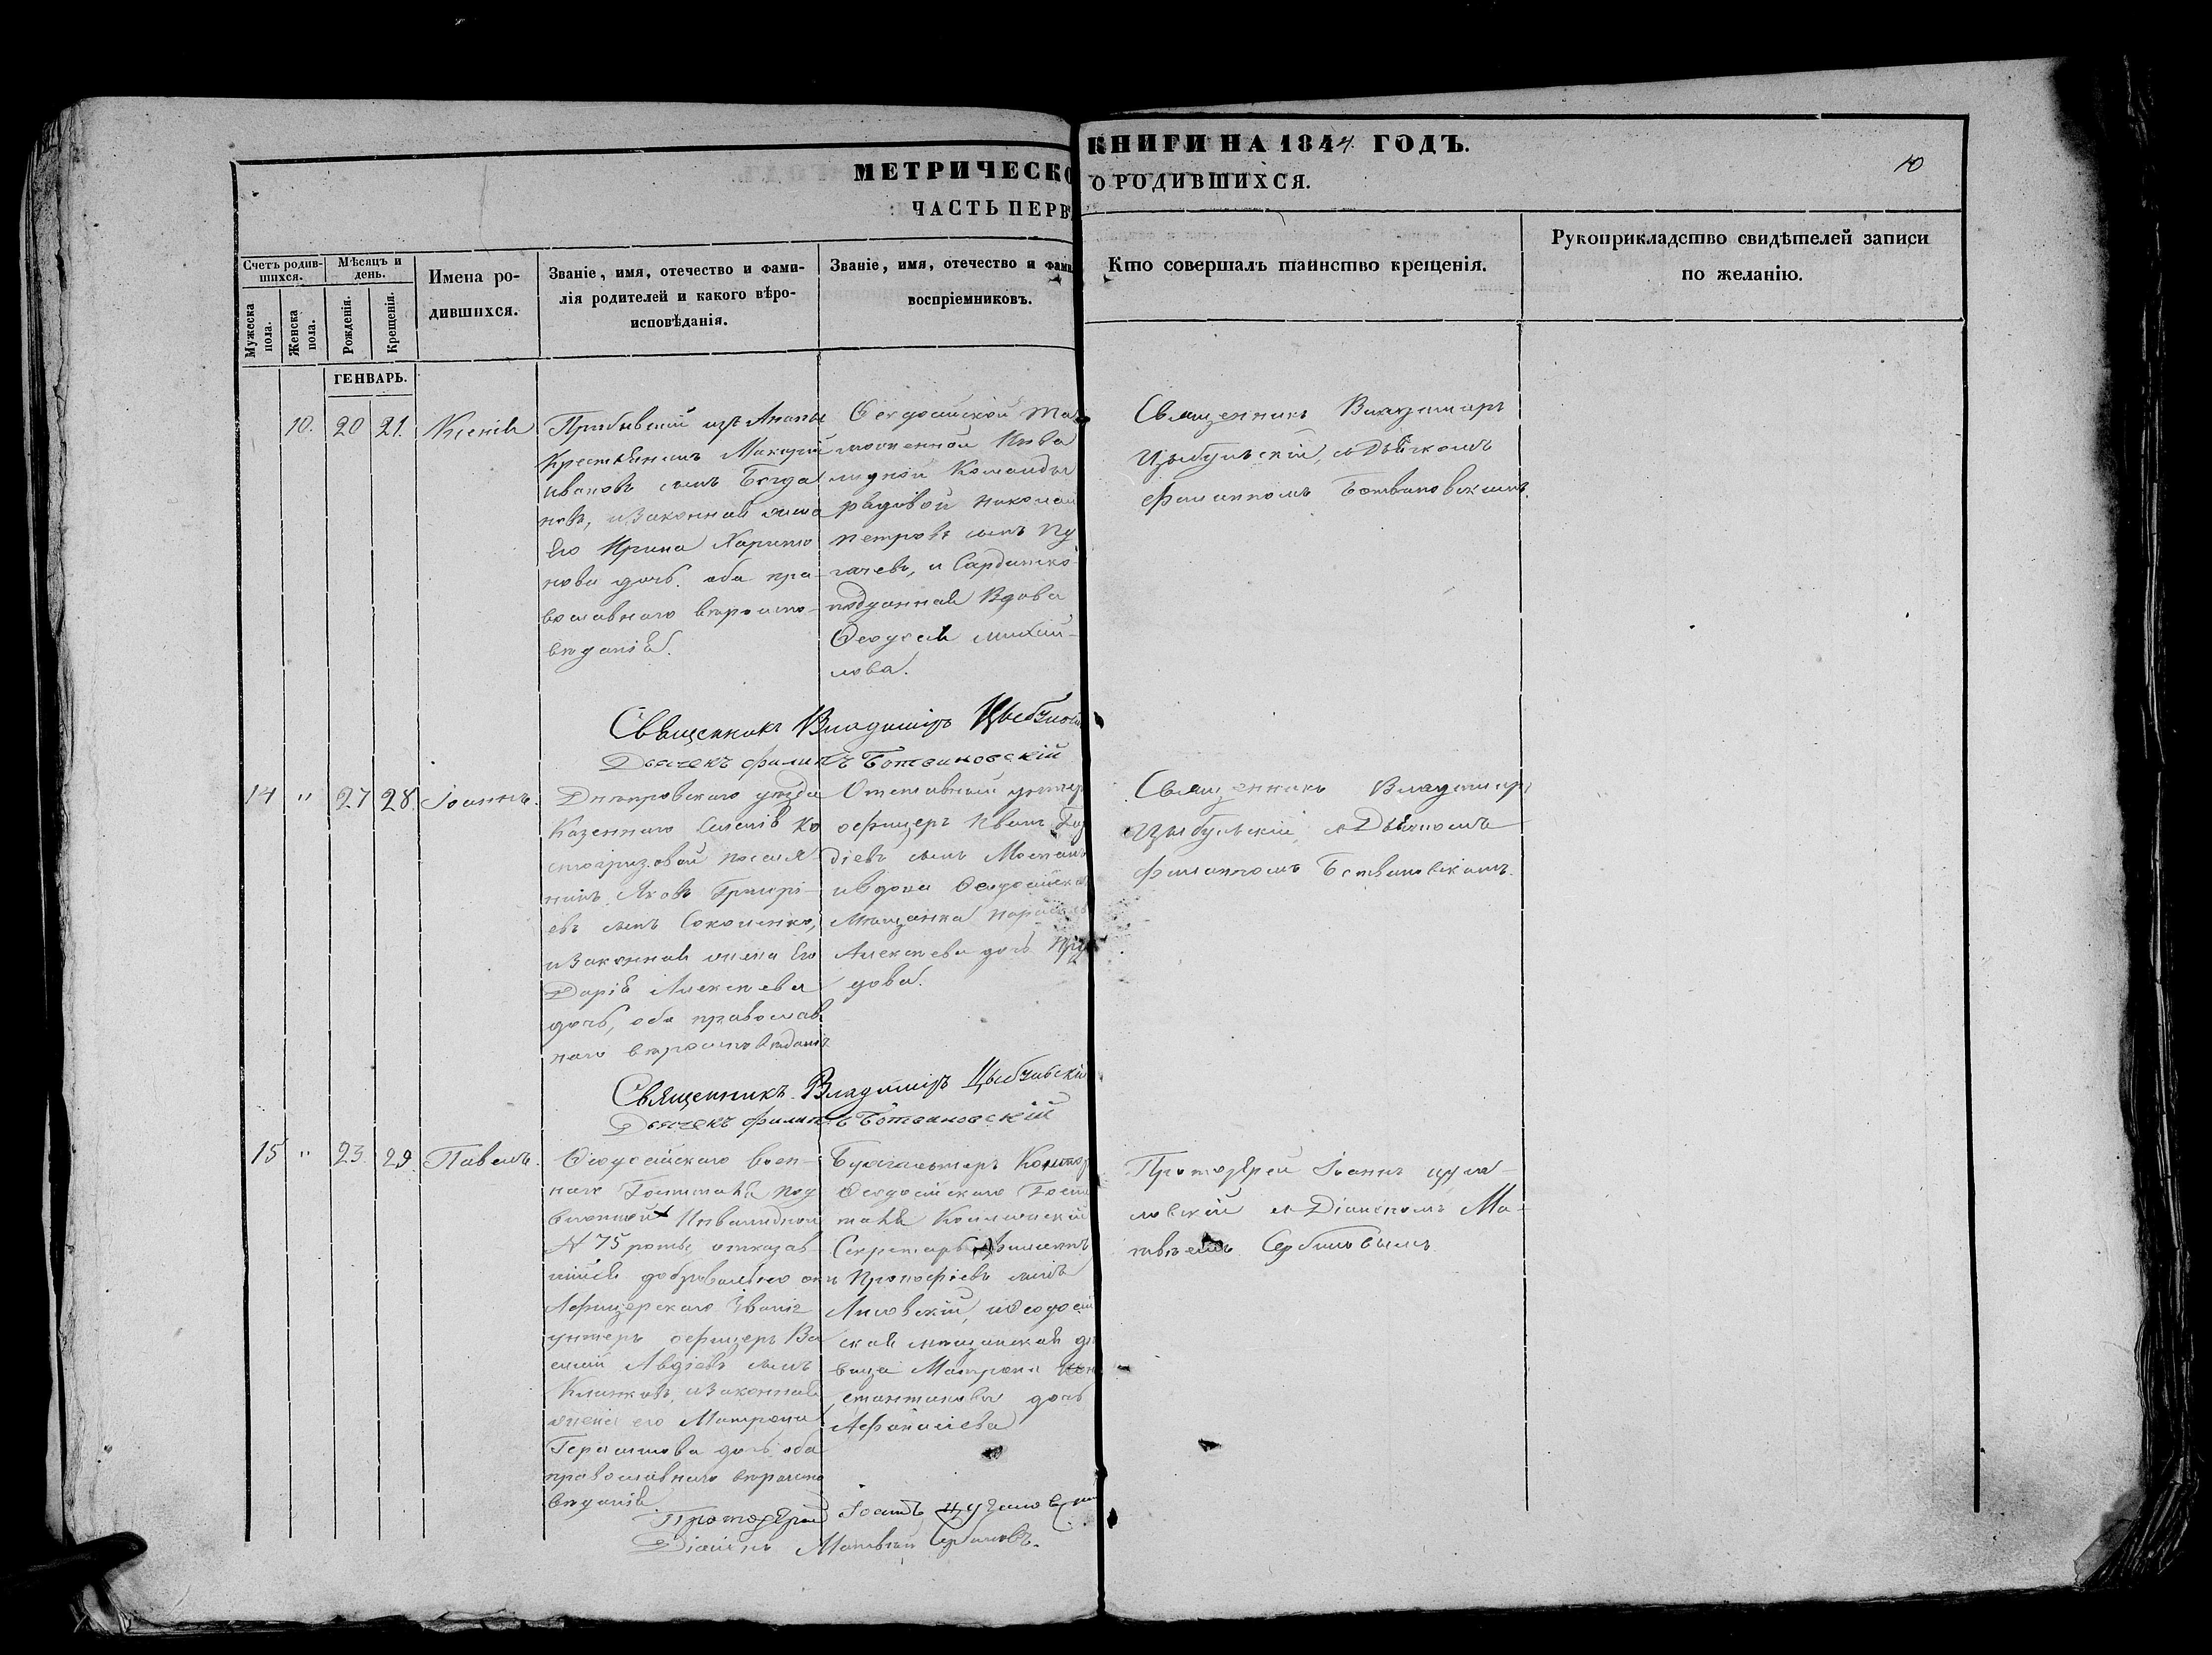 МЕТРИЧЕСКО
ЧАСТЬ ПЕРВ
КНИГИ НА 1844 ГОДЪ.
О РОДИВШИХСЯ.
10
Счетъ родив-
шихся.
Мужеска
пола.
Женска
пола.
Мѣсяцъ и
день.
Рожденія.
Крещенія.
Имена ро-
дившихся.
Званіе, имя, отечество и фами-
лія родителей и какого вѣро-
исповѣданія.
Званіе, имя, отечество и фами
воспріемниковъ.
Кто совершалъ таинство крещенія.
Рукоприкладство свидѣтелей записи
по желанію.
ГЕНВАРЬ.
10. 20 21. Ксенія
Прибывшій изъ Анапы
Крестьянинъ Макарій
Ивановъ сынъ Богда
новъ, и законная жена
Его Ирина Харито
нова дочь. оба пра-
вославного вѣроиспо-
вѣданія.
Ѳеодосійской Та
моженной Инва
лидной Команды
рядовой Николай
Петровъ сынъ Пу
гачевъ, и Сардинско
подданная Вдова
Ѳеодосія Михай-
лова.
Священникъ Владиміръ
Цыбульскій, съ Дьячкомъ
Филиппомъ Ботвиновскимъ.
Священникъ Владиміръ Цыбульскі
Дьячекъ Филиппъ Ботвиновскій
14 " 27 28. Іоаннъ.
Днѣпровскаго уѣзда
Казеннаго Селенія Ко
стогризовой поселя
нинъ Яковъ Григорі-
евъ сынъ Соколенко,
и законная жена Его
Дарія Алексѣева
дочь, оба православ
наго вѣроисповѣданія
Отставный унтер
офицеръ Иванъ
діевъ сынъ
и вдова Ѳеодосійска
Мѣщанка Параскев
Алексѣева дочь
дова.
Священникъ Владиміръ
Цыбульскій, съ Дьячкомъ
Филиппомъ Ботвиновскимъ.
Священникъ Владиміръ Цыбульскій
Дьячекъ Филиппъ Ботвиновскій
15 " 23 29. Павелъ.
Ѳеодосійскаго воен-
наго Гошпиталя под
вижной Инвалидной
N 75 роты, отказав-
шійся добровольно от
Афицерскаго Званія
унтеръ офицеръ Ва
силій Авдіевъ сынъ
Климковъ, и законная
жена его Матрона
Герасимова дочь оба
православнаго вѣроиспо
вѣданія.
Бухгалтеръ Конторы
Ѳеодосійскаго Гошпи
таля Коллежскій
Секретарь Филиппъ
Прокофіевъ сынъ
Лисовскій, и Ѳеодосій
ская мѣщанская дѣ
вица Матрона Кон
стантинова дочь
Афанасіева
Протоіерей Іоаннъ
съ Діакономъ Ма-
твѣемъ Сербиновымъ
Протоіерей Іоаннъ
Діаконъ Матвѣй Сербиновъ.